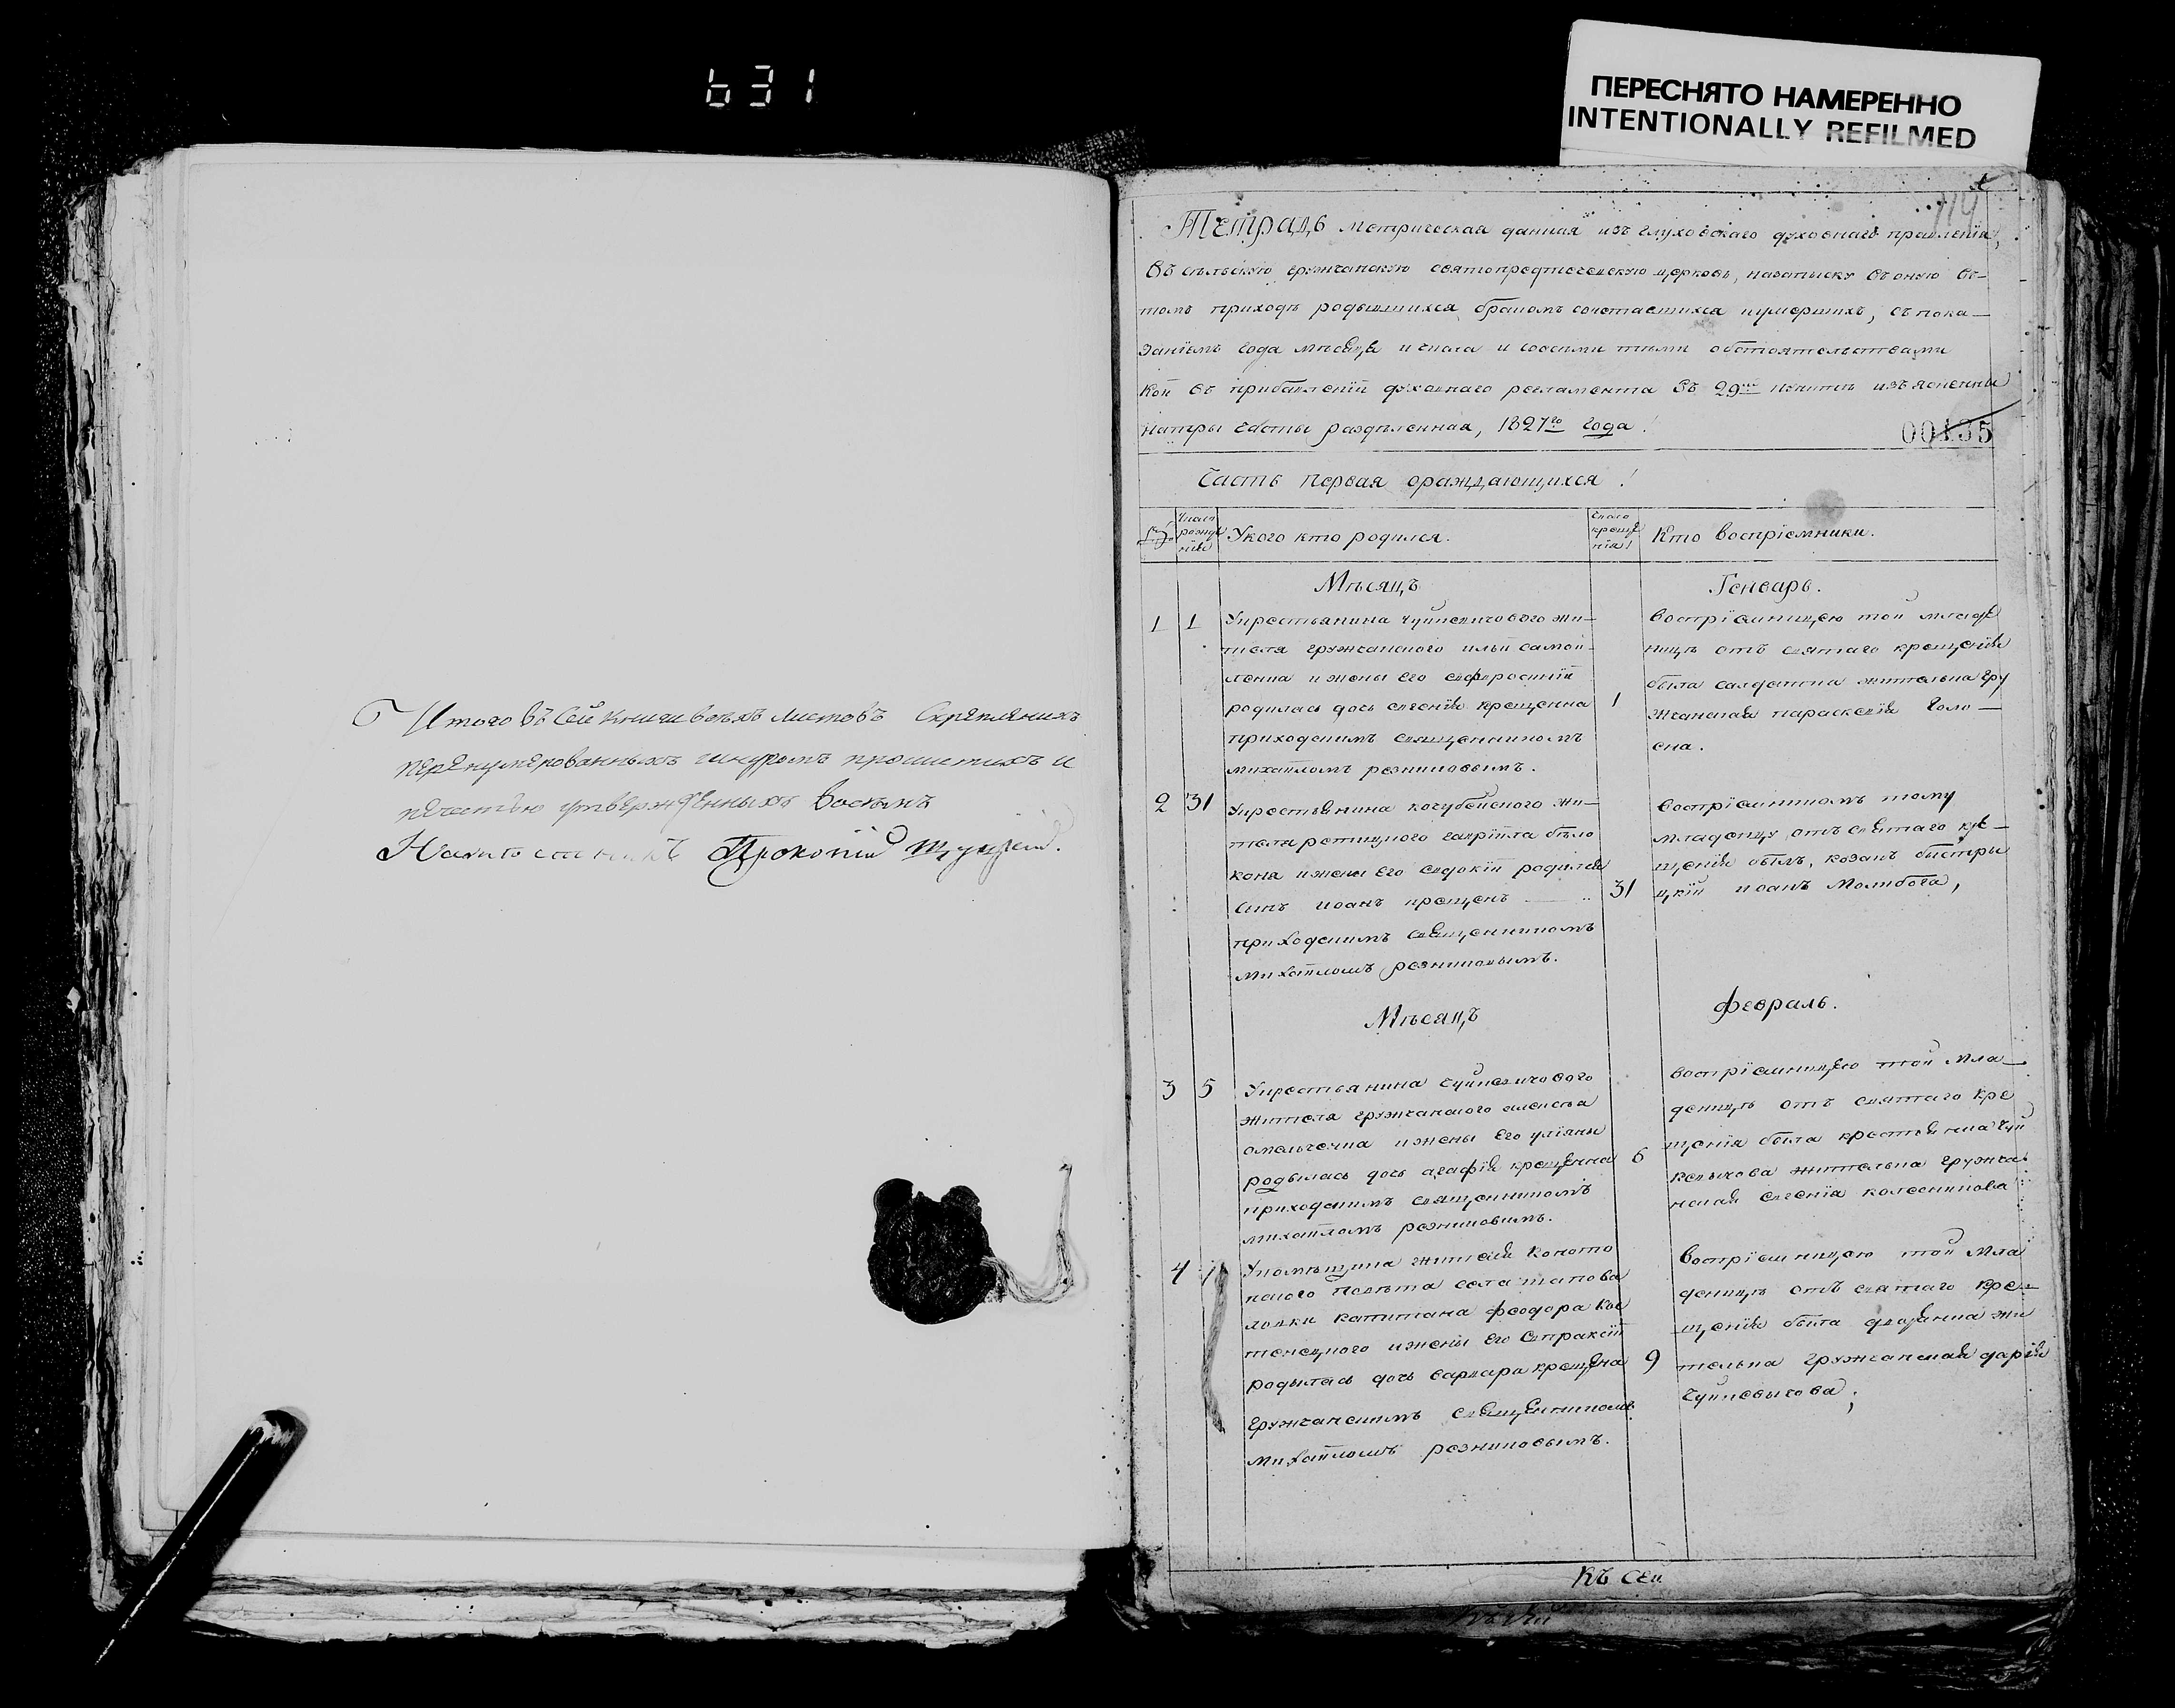 631
ПЕРЕСНЯТО НАМЕРЕННО
INTENTIONALLY REFILMED
Итого въ сей книги всѣхъ листовъ скрѣпленихъ
перенумерованныхъ шнуромъ прошитихъ и
печатью утвержденныхъ восѣмъ
Прокопій
114
Тетрадь метрическая данная изъ глуховскаго духовнаго правленія,
въ сельскую гружчанскую святопредтечевскую церковь, назаписку въ оную въ
томъ приходѣ родывшихся, бракомъ сочетавшихся иумершихъ, съ пока—
заніемъ года мѣсяца и числа и совсеми тѣми обстоятельствами
кои въ прибавленіи духовнаго регламента въ 29мъ пунктѣ изъясненны
натри части раздѣленная, 1827го года!
00135
Часть первая ораждающихся!
Число рожденія
Укого кто родился.
Число крещенія!
Кто воспріемники.
Мѣсяцъ
Генварь.
1 1 Укрестьянина чуйкевичового жи—
теля гружчанского ильи самой—
ленка ижены его евфросиніи
родилась дочь евгенія крещенна 1
приходскимъ священникомъ
михаиломъ резниковымъ.
воспріемницею той младе
ницѣ отъ святаго крещенія
была салдатка жителька гру
жчанская параскевія Голо—
вна.
2 31 Укрестьянина кочубейского жи—
теля ретицкого гавріила бѣло
кона ижены его евдокіи родился
синъ иоанъ крещенъ 31
приходскимъ священникомъ
михаиломъ резниковымъ.
воспріемникомъ тому
младенцу отъ святаго кре—
щенія былъ, козакъ быстри
цкій иоанъ Молибога,
Мѣсяцъ
Февраль.
3 5 Укрестьянина чуйкевичового
жителя гружчанского алексея
омельченка ижены его уліяны
родылась дочь агафія крещенна 6
приходскимъ священникомъ
михаиломъ резниковимъ.
воспріемницею той мла—
деницѣ отъ святаго кре
щенія была крестьянка чуй
кевычова жителька гружча
нская евгенія колесникова
4 7 Упомѣщика жителя Коното
пского повѣта села шапова
ловки капитана феодора Кве
тенецкого ижены его Евпраксіи
родылась дочь варвара крещена 9
гружчанскимъ священникомъ
михаиломъ резниковымъ.
воспріемницею той мла
деницѣ отъ святаго кре—
щенія была дворянка жи
телька гружчанская дарія
чуйкевычова;
Къ сей